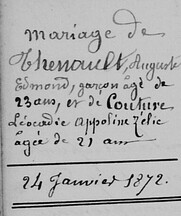 Mariage de
Thenault, Auguste
Edmond, garçon âgé de
23 ans, et de Couture
Léocadie Appoline Zélie
âgée de 21 ans
24 Janvier 1872.